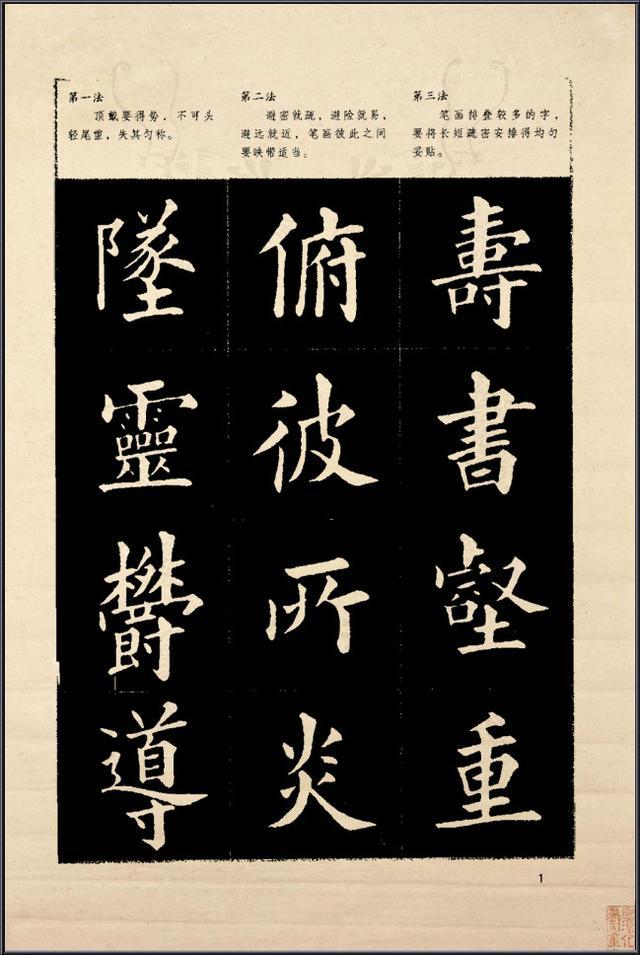 第一法
顶戴要得势，不可头
轻尾重，失其匀称。
第二法
避密就疏，避险就易，
避远就近，笔画彼此之间
要映带适当。
第三法
笔画排叠较多的字，
要将长短疏密安排得均匀
妥贴。
墜 俯 壽
靈 彼 書
欝 所 壑
導 炎 重
1